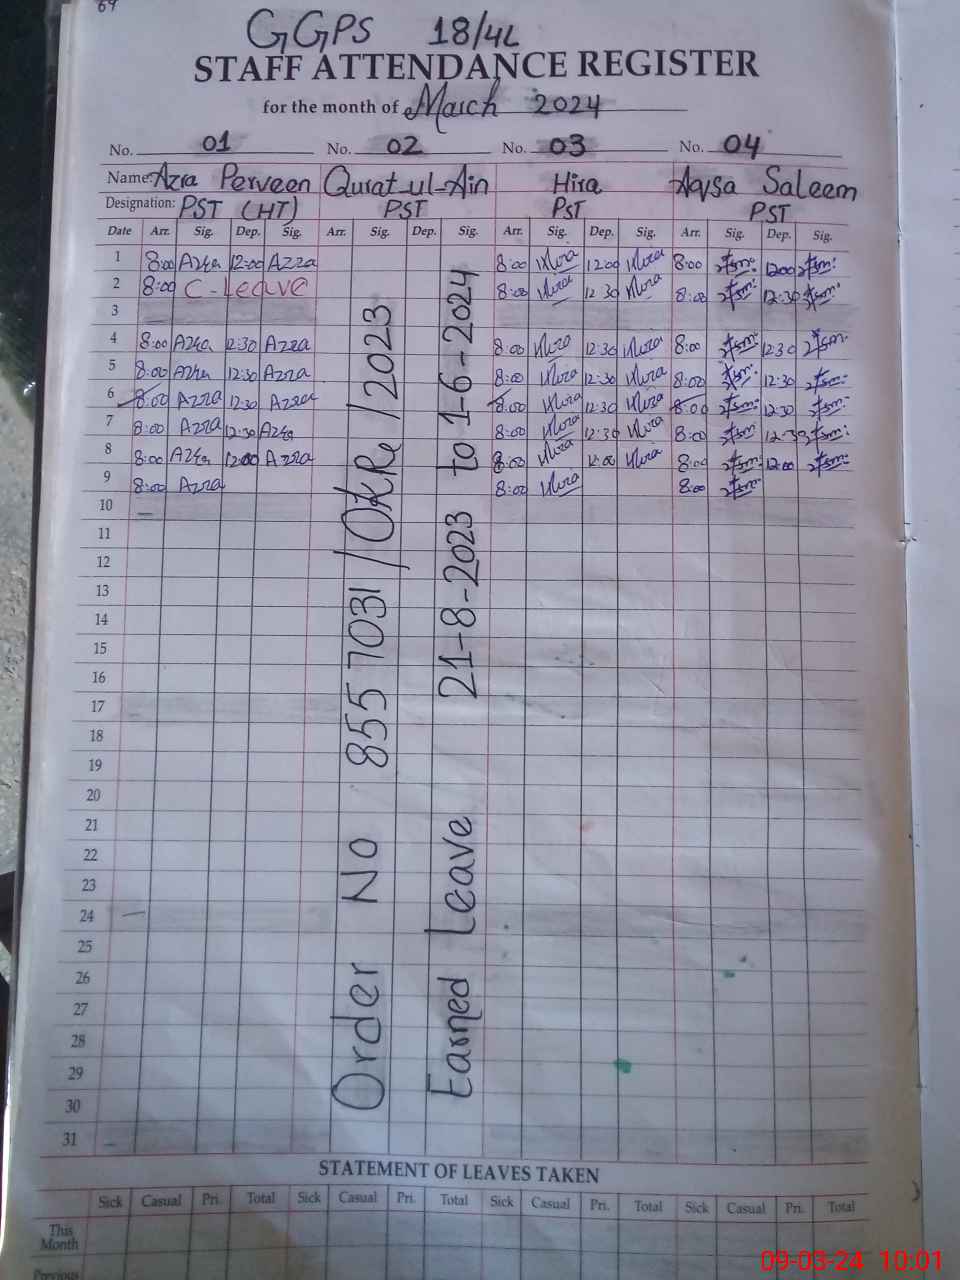 69
GGPS 18/4L
STAFF ATTENDANCE REGISTER
for the month of March 2024
No. 01 No. 02 No. 03 No. 04
Name: Azra Perveen Qurat-ul-Ain Hira Aqsa Saleem
Designation: PST (HT) PST PST PST
Date Arr. Sig. Dep. Sig. Arr. Sig. Dep. Sig. Arr. Sig. Dep. Sig. Arr. Sig. Dep. Sig.
1 8:00 Azra 12:00 Azra 8:00 Hira 12:00 Hira 8:00 12:00
2 8:00 C-Leave 8:00 Hira 12:30 Hira 8:00 12:30
3
4 8:00 Azra 12:30 Azra 8:00 Hira 12:30 Hira 8:00 12:30
5 8:00 Azra 12:30 Azra 8:00 Hira 12:30 Hira 8:00 12:30
6 8:00 Azra 12:30 Azra 8:00 Hira 12:30 Hira 8:00 12:30
7 8:00 Azra 12:30 Azra 8:00 Hira 12:30 Hira 8:00 12:30
8 8:00 Azra 12:00 Azra 8:00 Hira 12:00 Hira 8:00 12:00
9 8:00 Azra 8:00 Hira 8:00
10
11
12
13
14
15
16
17
18
19
20
21
22
23
24
25
26
27
28
29
30
31
Order No 8557031/OKRe/2023
Earned Leave 21-8-2023 to 1-6-2024
STATEMENT OF LEAVES TAKEN
Sick Casual Pri. Total Sick Casual Pri. Total Sick Casual Pri. Total Sick Casual Pri. Total
This
Month
Previous
09-03-24 10:01